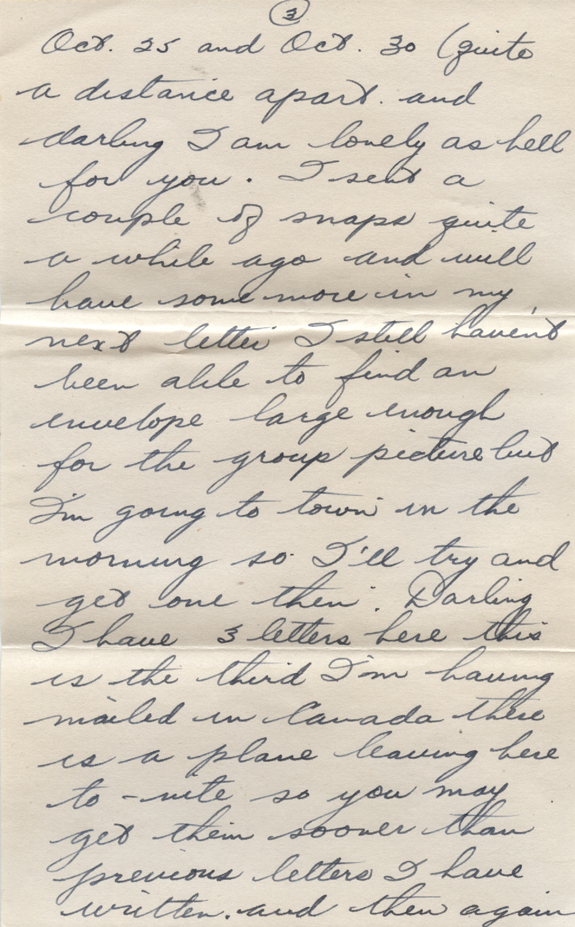 3
Oct. 25 and Oct. 30 (quite
a distance apart. and
darling I am lonely as hell
for you. I sent a
couple of snaps quite
a while ago and will
have some more in my
next letter I still haven't
been able to find an
envelope large enough
for the group picture but
I'm going to town in the
morning so I'll try and
get one then. Darling
I have 3 letters here this
is the third I'm having
mailed in Canada there
is a plane leaving here
to-nite so you may
get them sooner than
previous letters I have
written. and then again